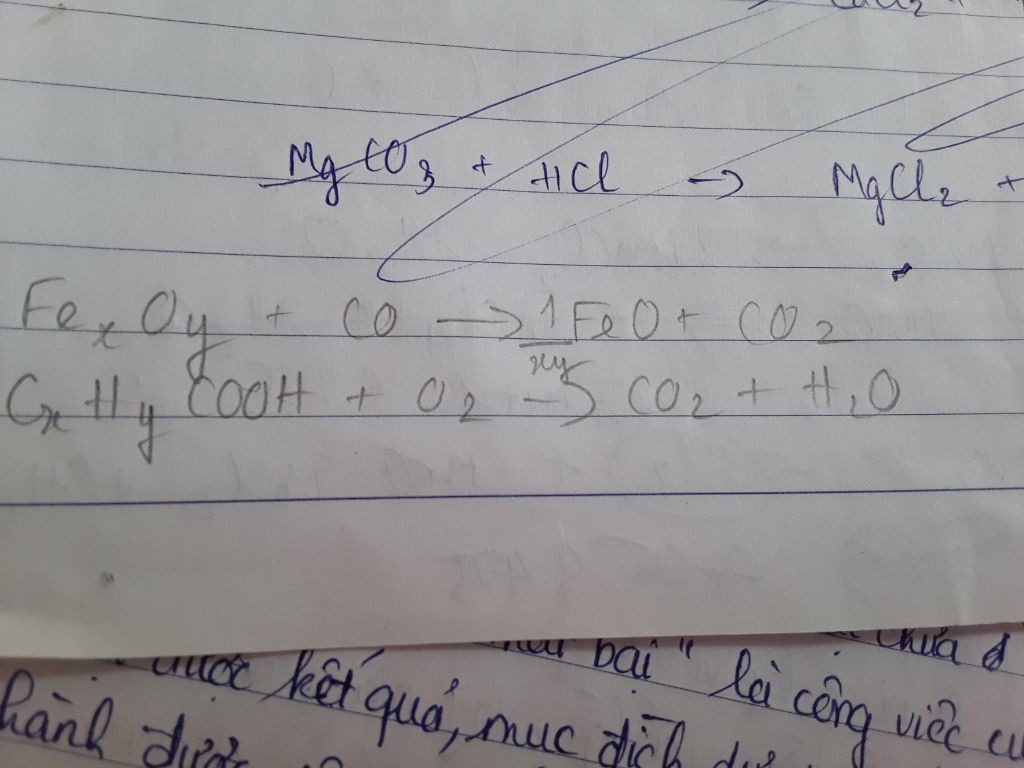 MgCO3 + HCl → MgCl2 +
FexOy + CO → 1/xy FeO + CO2
CxHyCOOH + O2 → CO2 + H2O
được kết quả, mục đích
bại" là công việc
chưa
hành được